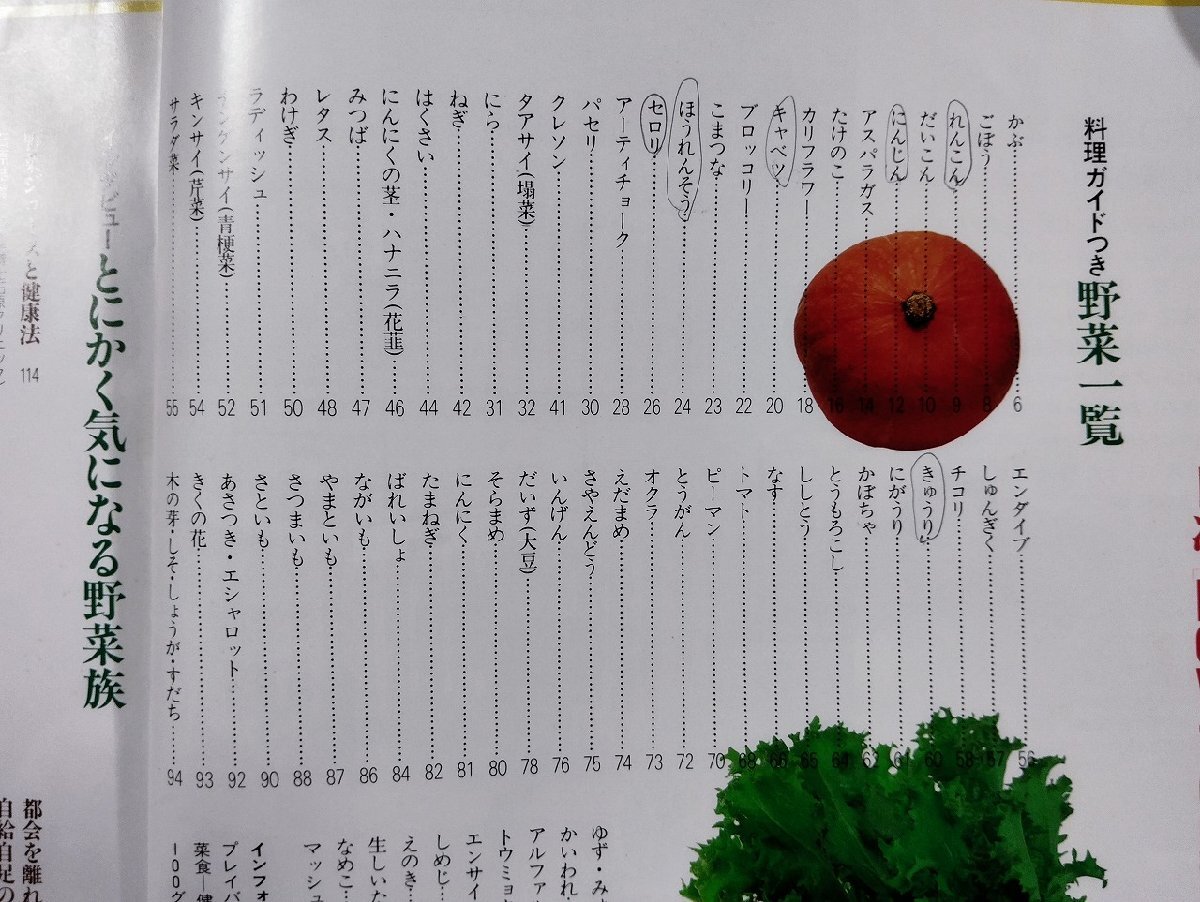 料理ガイドつき 野菜一覧
かぶ 6
ごぼう 8
れんこん 9
だいこん 10
にんじん 12
アスパラガス 14
たけのこ 16
カリフラワー 18
キャベツ 20
ブロッコリー 22
こまつな 23
ほうれんそう 24
セロリ 26
アーティチョーク 28
パセリ 30
クレソン 41
タアサイ(塌菜) 32
にら 31
ねぎ 42
はくさい 44
にんにくの茎・ハナニラ(花韮) 46
みつば 47
レタス 48
わけぎ 50
ラディッシュ 51
チンゲンサイ(青梗菜) 52
キンサイ(芹菜) 54
サラダ菜 55
エンダイブ 56
しゅんぎく 57
チコリ 58
きゅうり 60
にがうり 61
かぼちゃ 62
とうもろこし 64
ししとう 65
なす 66
トマト 68
ピーマン 70
とうがん 72
オクラ 73
えだまめ 74
さやえんどう 75
いんげん 76
だいず(大豆) 78
そらまめ 80
にんにく 81
たまねぎ 82
ばれいしょ 84
ながいも 86
やまといも 87
さつまいも 88
さといも 90
あさつき・エシャロット 92
きくの花 93
木の芽・しそ・しょうが・すだち 94
ゆず・み
かいわれ
アルファ
トウミョ
エンサイ
しめじ
えのき
生しいた
なめこ
マッシュ
インフォ
プレイバ
菜食―健
100グ
ビューとにかく気になる野菜族
と健康法 114
都会を離れ
自給自足の